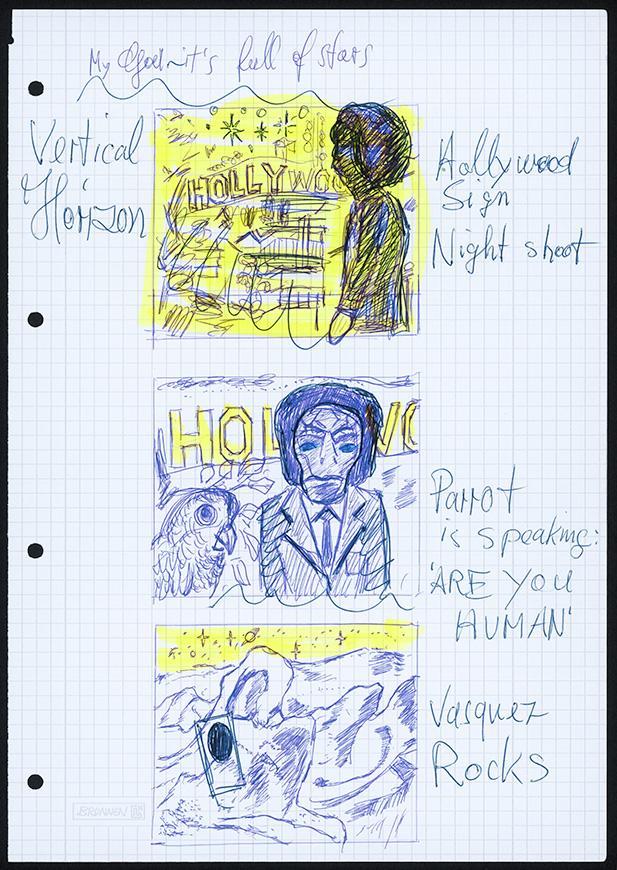 My God~it's full of stars
Vertical
Horizon
HOLLYWOO
Hollywood
Sign
Night shoot
HOL WO
Parrot
is speaking:
'ARE YOU
HUMAN'
Vasquez
Rocks
BRUNNEN